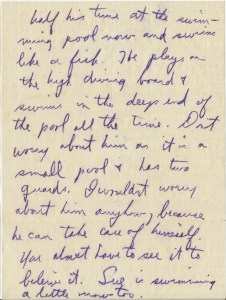 half his time at the swim-
ming pool now and swims
like a fish. He plays on
the high diving board &
swims in the deep end of
the pool all the time. Don't
worry about him as it is a
small pool & has two
guards. I wouldn't worry
about him anyhow, because
he can take care of himself.
You almost have to see it to
believe it. Sue is swimming
a little now too.